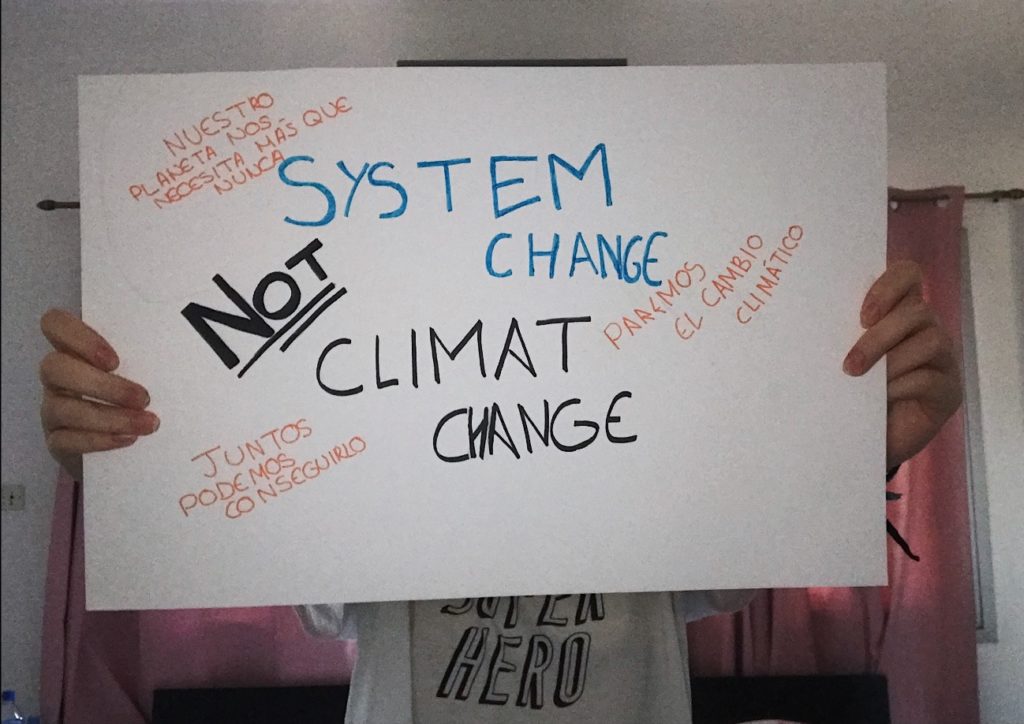 NUESTRO
PLANETA NOS
NECESITA MÁS QUE
NUNCA
SYSTEM
CHANGE
NOT
CLIMAT
CHANGE
PAREMOS
EL CAMBIO
CLIMÁTICO
JUNTOS
PODEMOS
CONSEGUIRLO
SUPER
HERO